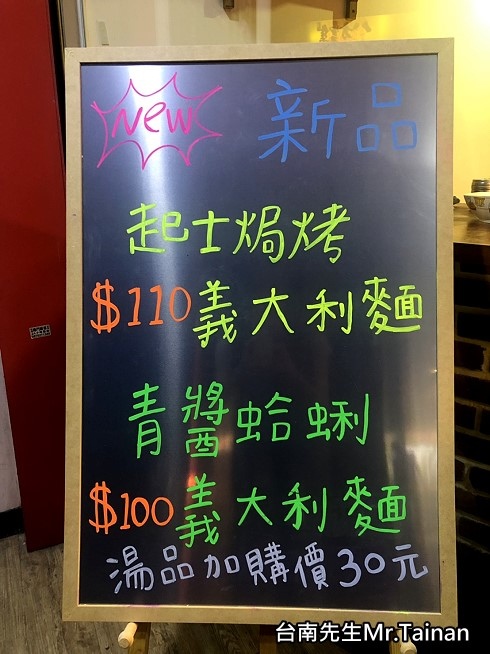 New 新品
起士焗烤
$110義大利麵
青醬蛤蜊
$100義大利麵
湯品加購價30元
台南先生Mr.Tainan